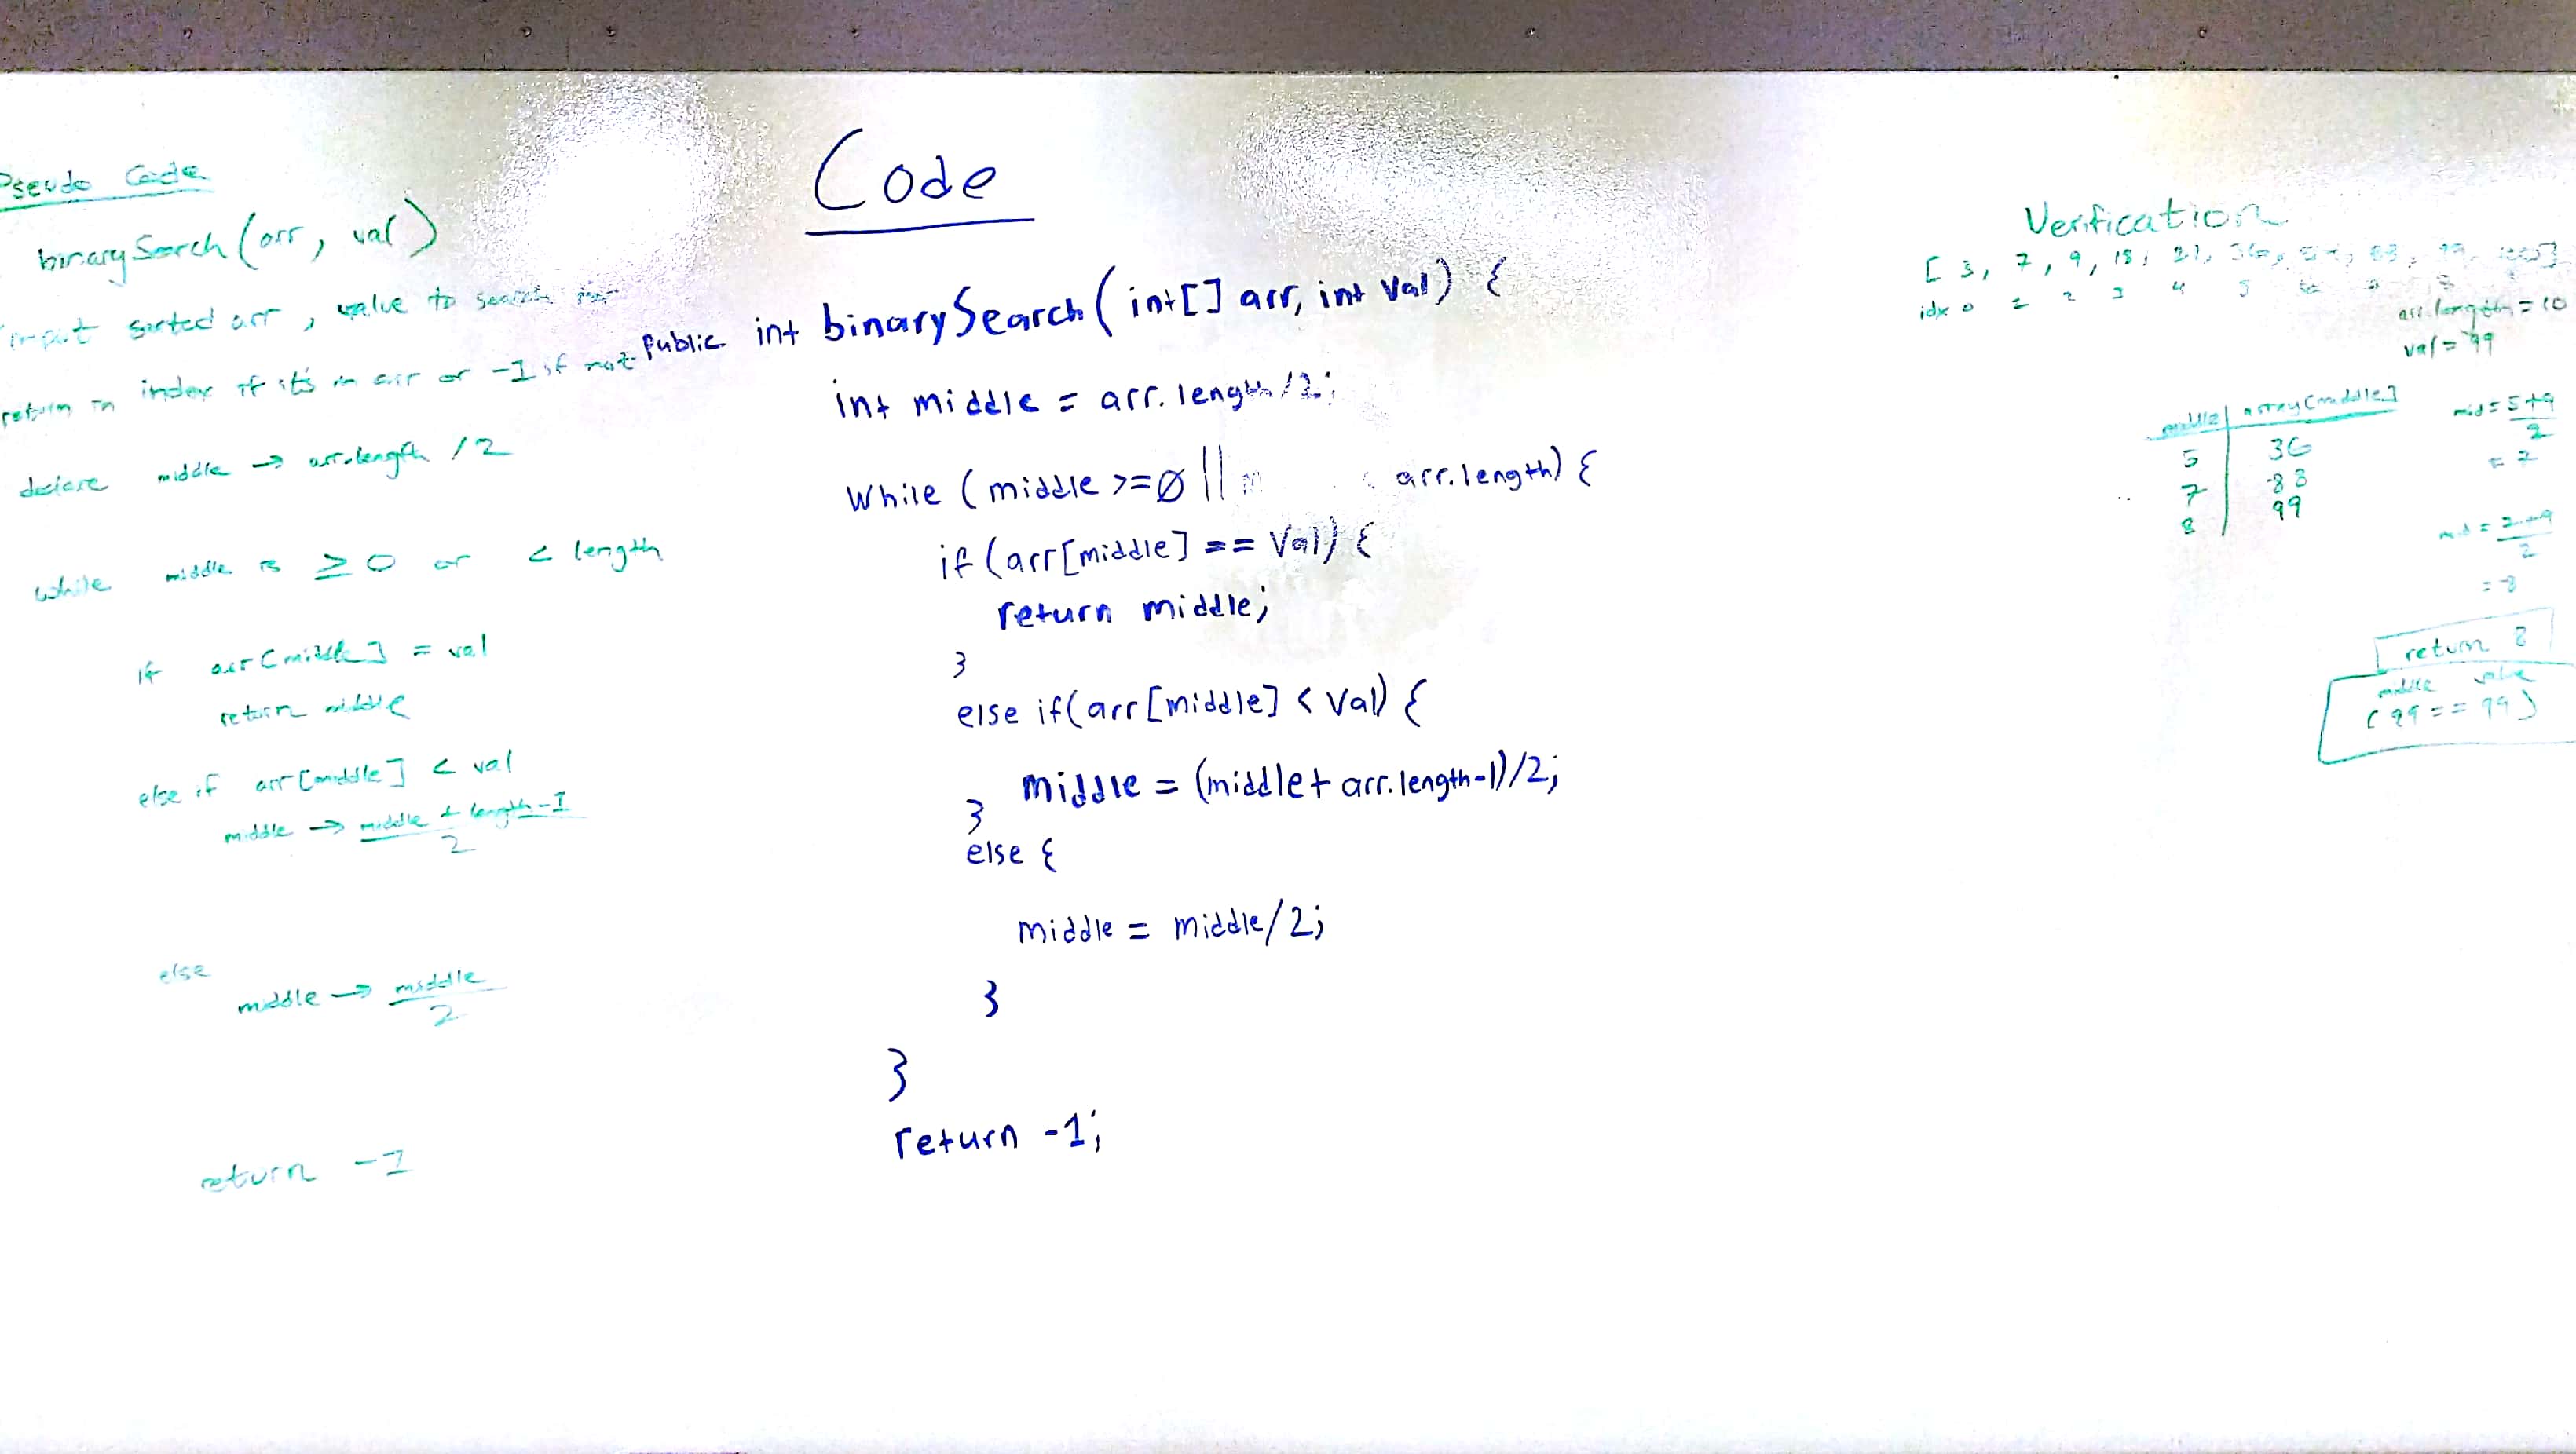 Pseudo Code
binarySearch(arr, val)
input sorted arr, value to search for
return in index if it's in arr or -1 if not
declare middle → arr.length / 2
while middle is ≥ 0 or < length
if arr[middle] = val
return middle
else if arr[middle] < val
middle → middle + length-1
2
else
middle → middle
2
return -1
Code
Public int binarySearch(int[] arr, int Val) {
int middle = arr.length/2;
While (middle >=0 || < arr.length) {
if (arr[middle] == Val) {
return middle;
}
else if(arr[middle] < Val) {
middle = (middle+ arr.length-1)/2;
}
else {
middle = middle/2;
}
}
return -1;
Verification
[ 3, 7, 9, 18, 21, 36, 83, 99,
idx 0 1 2 3 4 5
arr.length = 10
val = 99
middle | array[middle]
5 36
7 83
8 99
mid = 5+9
2
= 7
mid = 7+9
2
= 8
return 8
middle value
(99 == 99)